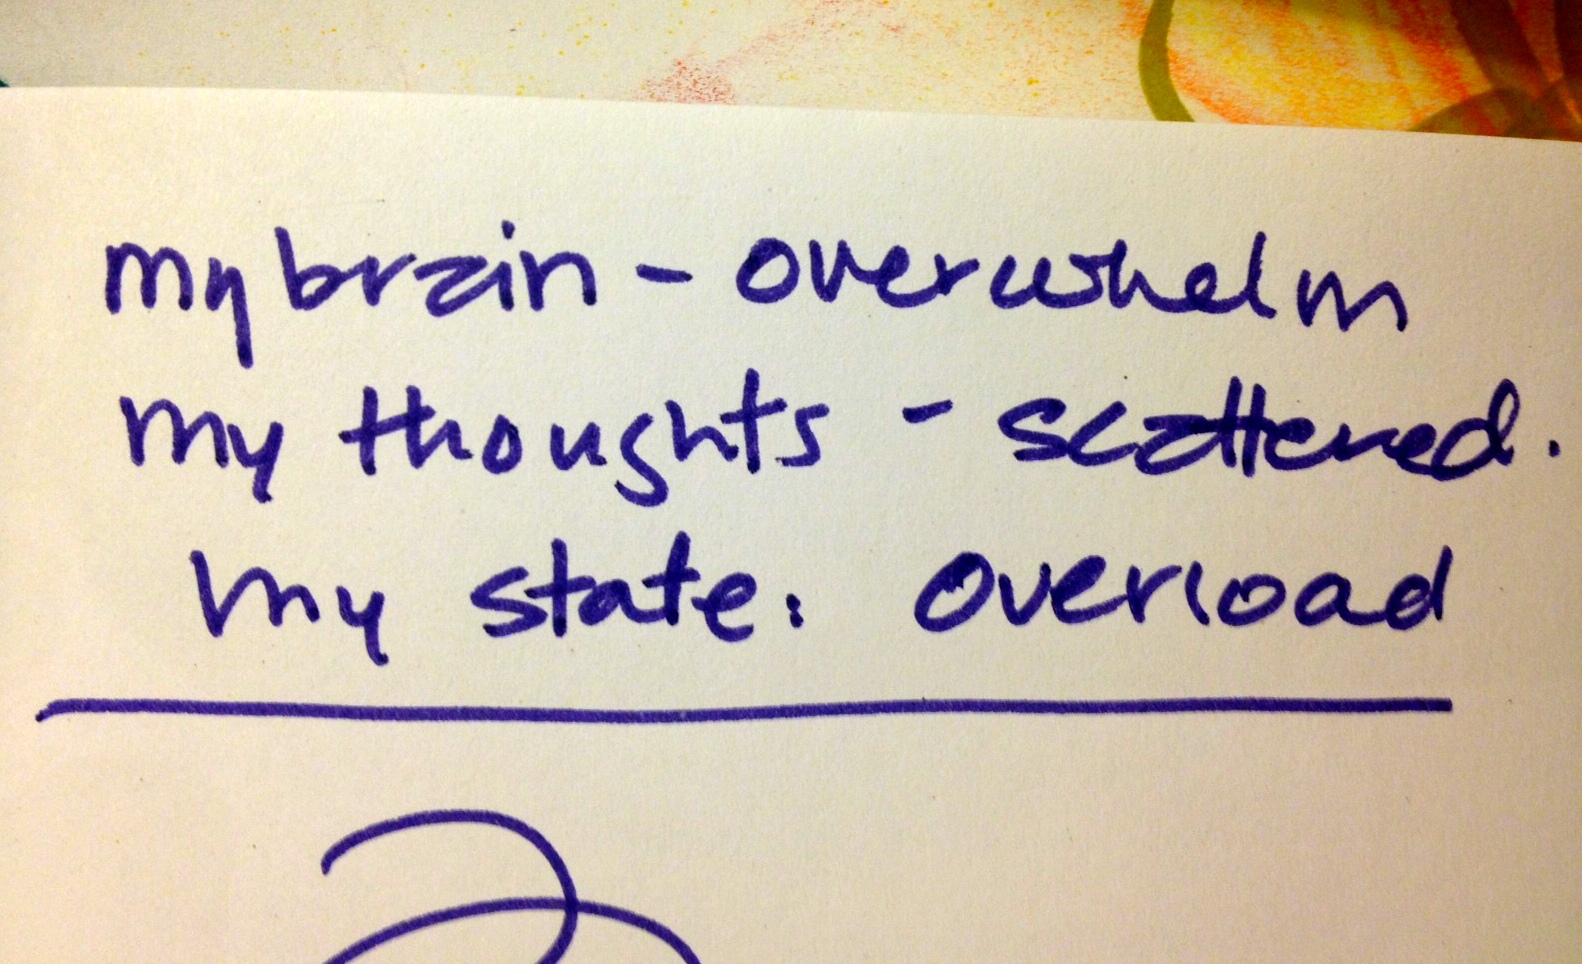 my brain - overwhelm
my thoughts - scattered.
my state: overload